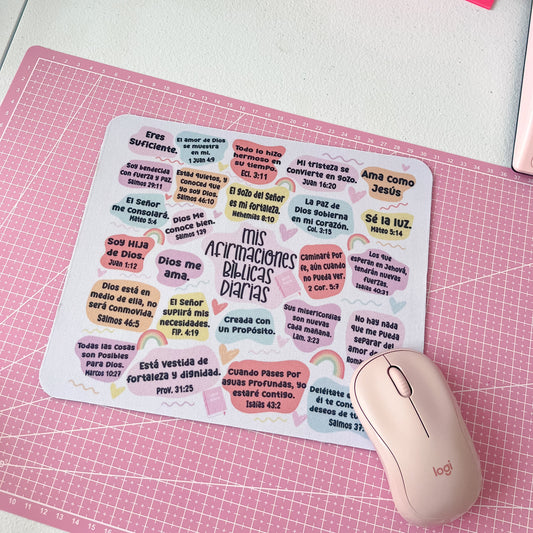 Eres
Suficiente.
El amor de Dios
se muestra
en mi.
1 Juan 4:9
Todo lo hizo
hermoso en
su tiempo.
Ecl. 3:11
Mi tristeza se
convierte en gozo.
Juan 16:20
Ama Como
Jesús
Soy bendecida
con fuerza y paz.
Salmos 29:11
Estad quietos, y
conoced que
yo soy Dios.
Salmos 46:10
El gozo del Señor
es mi fortaleza.
Nehemías 8:10
La Paz de
Dios gobierna
en mi Corazón.
Col. 3:15
Sé la luz.
Mateo 5:14
El Señor
me Consolará.
Mateo 5:4
Dios Me
Conoce bien.
Salmos 139
Mis
Afirmaciones
Bíblicas
Diarias
Soy Hija
de Dios.
Juan 1:12
Dios me
ama.
Caminaré Por
fe, aún cuando
no Pueda ver.
2 Cor. 5:7
Los que
esperan en Jehová,
tendrán nuevas
fuerzas.
Isaías 40:31
Dios está en
medio de ella, no
será conmovida.
Salmos 46:5
El Señor
suplirá mis
necesidades.
FIP. 4:19
Creada Con
un ProPósito.
Sus misericordias
son nuevas
cada mañana.
Lam. 3:23
No hay nada
que me Pueda
separar del
amor de
Todas las Cosas
son Posibles
Para Dios.
Marcos 10:27
Está vestida de
fortaleza y dignidad.
Prov. 31:25
Cuando Pases Por
aguas Profundas, yo
estaré Contigo.
Isaías 43:2
Deléitate
él te Conc
deseos de tu
Salmos 37:
logi